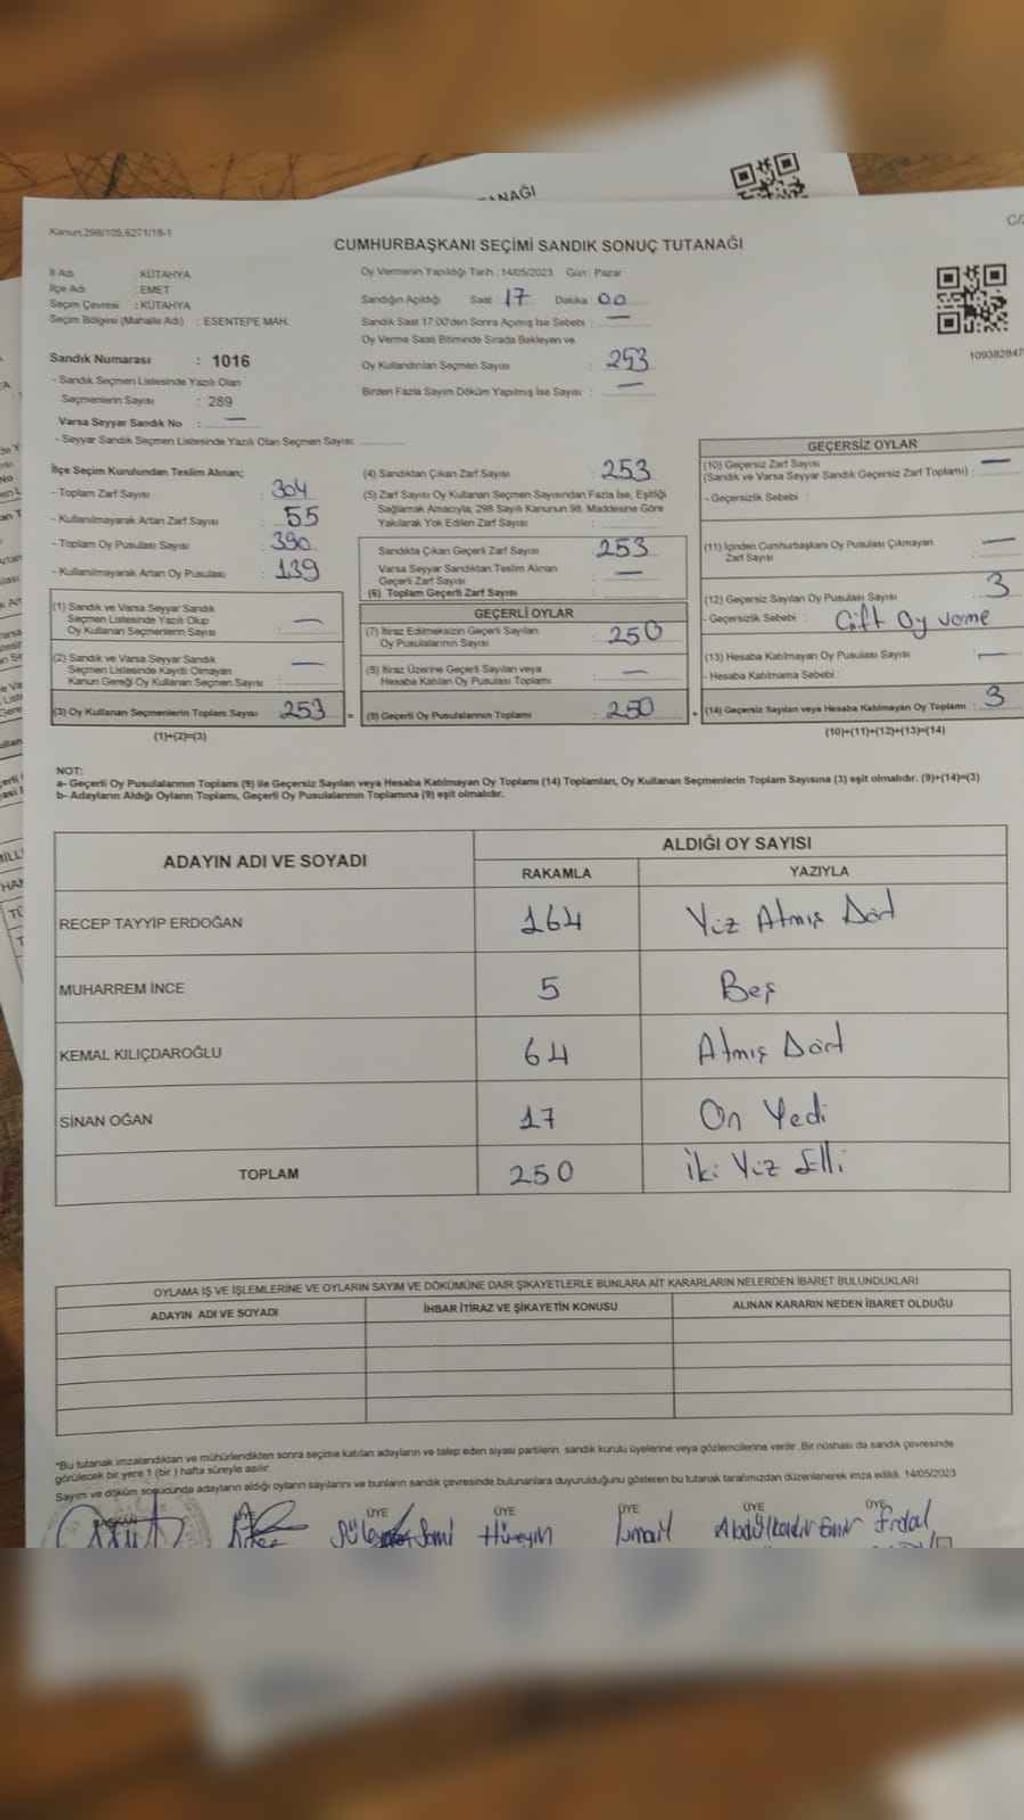 TANAĞI
Kanun:298/105,6271/18-1
C/
CUMHURBAŞKANI SEÇİMİ SANDIK SONUÇ TUTANAĞI
İl Adı : KÜTAHYA
İlçe Adı : EMET
Seçim Çevresi : KÜTAHYA
Seçim Bölgesi (Mahalle Adı) : ESENTEPE MAH.
Oy Vermenin Yapıldığı Tarih : 14/05/2023 Gün: Pazar
Sandığın Açıldığı Saat 17 Dakika 00
Sandık Saat 17:00'den Sonra Açılmış İse Sebebi : —
Oy Verme Saati Bitiminde Sırada Bekleyen ve
Oy Kullandırılan Seçmen Sayısı : 253
Birden Fazla Sayım Döküm Yapılmış İse Sayısı : —
109382847
Sandık Numarası : 1016
- Sandık Seçmen Listesinde Yazılı Olan
Seçmenlerin Sayısı : 289
Varsa Seyyar Sandık No : —
- Seyyar Sandık Seçmen Listesinde Yazılı Olan Seçmen Sayısı:
İlçe Seçim Kurulundan Teslim Alınan;
- Toplam Zarf Sayısı : 304
- Kullanılmayarak Artan Zarf Sayısı : 55
- Toplam Oy Pusulası Sayısı : 390
- Kullanılmayarak Artan Oy Pusulası : 139
(1) Sandık ve Varsa Seyyar Sandık
Seçmen Listesinde Yazılı Olup
Oy Kullanan Seçmenlerin Sayısı : —
(2) Sandık ve Varsa Seyyar Sandık
Seçmen Listesinde Kayıtlı Olmayan
Kanun Gereği Oy Kullanan Seçmen Sayısı : —
(3) Oy Kullanan Seçmenlerin Toplam Sayısı : 253
(1)+(2)=(3)
(4) Sandıktan Çıkan Zarf Sayısı : 253
(5) Zarf Sayısı Oy Kullanan Seçmen Sayısından Fazla İse, Eşitliği
Sağlamak Amacıyla; 298 Sayılı Kanunun 98. Maddesine Göre
Yakılarak Yok Edilen Zarf Sayısı :
Sandıkta Çıkan Geçerli Zarf Sayısı : 253
Varsa Seyyar Sandıktan Teslim Alınan
Geçerli Zarf Sayısı : —
(6) Toplam Geçerli Zarf Sayısı :
GEÇERLİ OYLAR
(7) İtiraz Edilmeksizin Geçerli Sayılan
Oy Pusulalarının Sayısı : 250
(8) İtiraz Üzerine Geçerli Sayılan veya
Hesaba Katılan Oy Pusulası Toplamı : —
(9) Geçerli Oy Pusulalarının Toplamı : 250
GEÇERSİZ OYLAR
(10) Geçersiz Zarf Sayısı
(Sandık ve Varsa Seyyar Sandık Geçersiz Zarf Toplamı) : —
- Geçersizlik Sebebi :
(11) İçinden Cumhurbaşkanı Oy Pusulası Çıkmayan
Zarf Sayısı : —
(12) Geçersiz Sayılan Oy Pusulası Sayısı : 3
- Geçersizlik Sebebi : Çift Oy verme
(13) Hesaba Katılmayan Oy Pusulası Sayısı : —
- Hesaba Katılmama Sebebi :
(14) Geçersiz Sayılan veya Hesaba Katılmayan Oy Toplamı : 3
(10)+(11)+(12)+(13)=(14)
NOT:
a- Geçerli Oy Pusulalarının Toplamı (9) ile Geçersiz Sayılan veya Hesaba Katılmayan Oy Toplamı (14) Toplamları, Oy Kullanan Seçmenlerin Toplam Sayısına (3) eşit olmalıdır. (9)+(14)=(3)
b- Adayların Aldığı Oyların Toplamı, Geçerli Oy Pusulalarının Toplamına (9) eşit olmalıdır.
ADAYIN ADI VE SOYADI
ALDIĞI OY SAYISI
RAKAMLA YAZIYLA
RECEP TAYYİP ERDOĞAN 164 Yüz Atmış Dört
MUHARREM İNCE 5 Beş
KEMAL KILIÇDAROĞLU 64 Atmış Dört
SİNAN OĞAN 17 On Yedi
TOPLAM 250 İki Yüz Elli
OYLAMA İŞ VE İŞLEMLERİNE VE OYLARIN SAYIM VE DÖKÜMÜNE DAİR ŞİKAYETLERLE BUNLARA AİT KARARLARIN NELERDEN İBARET BULUNDUKLARI
ADAYIN ADI VE SOYADI İHBAR İTİRAZ VE ŞİKAYETİN KONUSU ALINAN KARARIN NEDEN İBARET OLDUĞU
*Bu tutanak imzalandıktan ve mühürlendikten sonra seçime katılan adayların ve talep eden siyasi partilerin sandık kurulu üyelerine veya gözlemcilerine verilir. Bir nüshası da sandık çevresinde
görülecek bir yere 1 (bir) hafta süreyle asılır.
Sayım ve döküm sonucunda adayların aldığı oyların sayılarını ve bunların sandık çevresinde bulunanlara duyurulduğunu gösteren bu tutanak tarafımızdan düzenlenerek imza edildi. 14/05/2023
BAŞKAN ÜYE ÜYE ÜYE ÜYE ÜYE
Sami Hüseyin İsmail Abdülkadir Emir Erdal